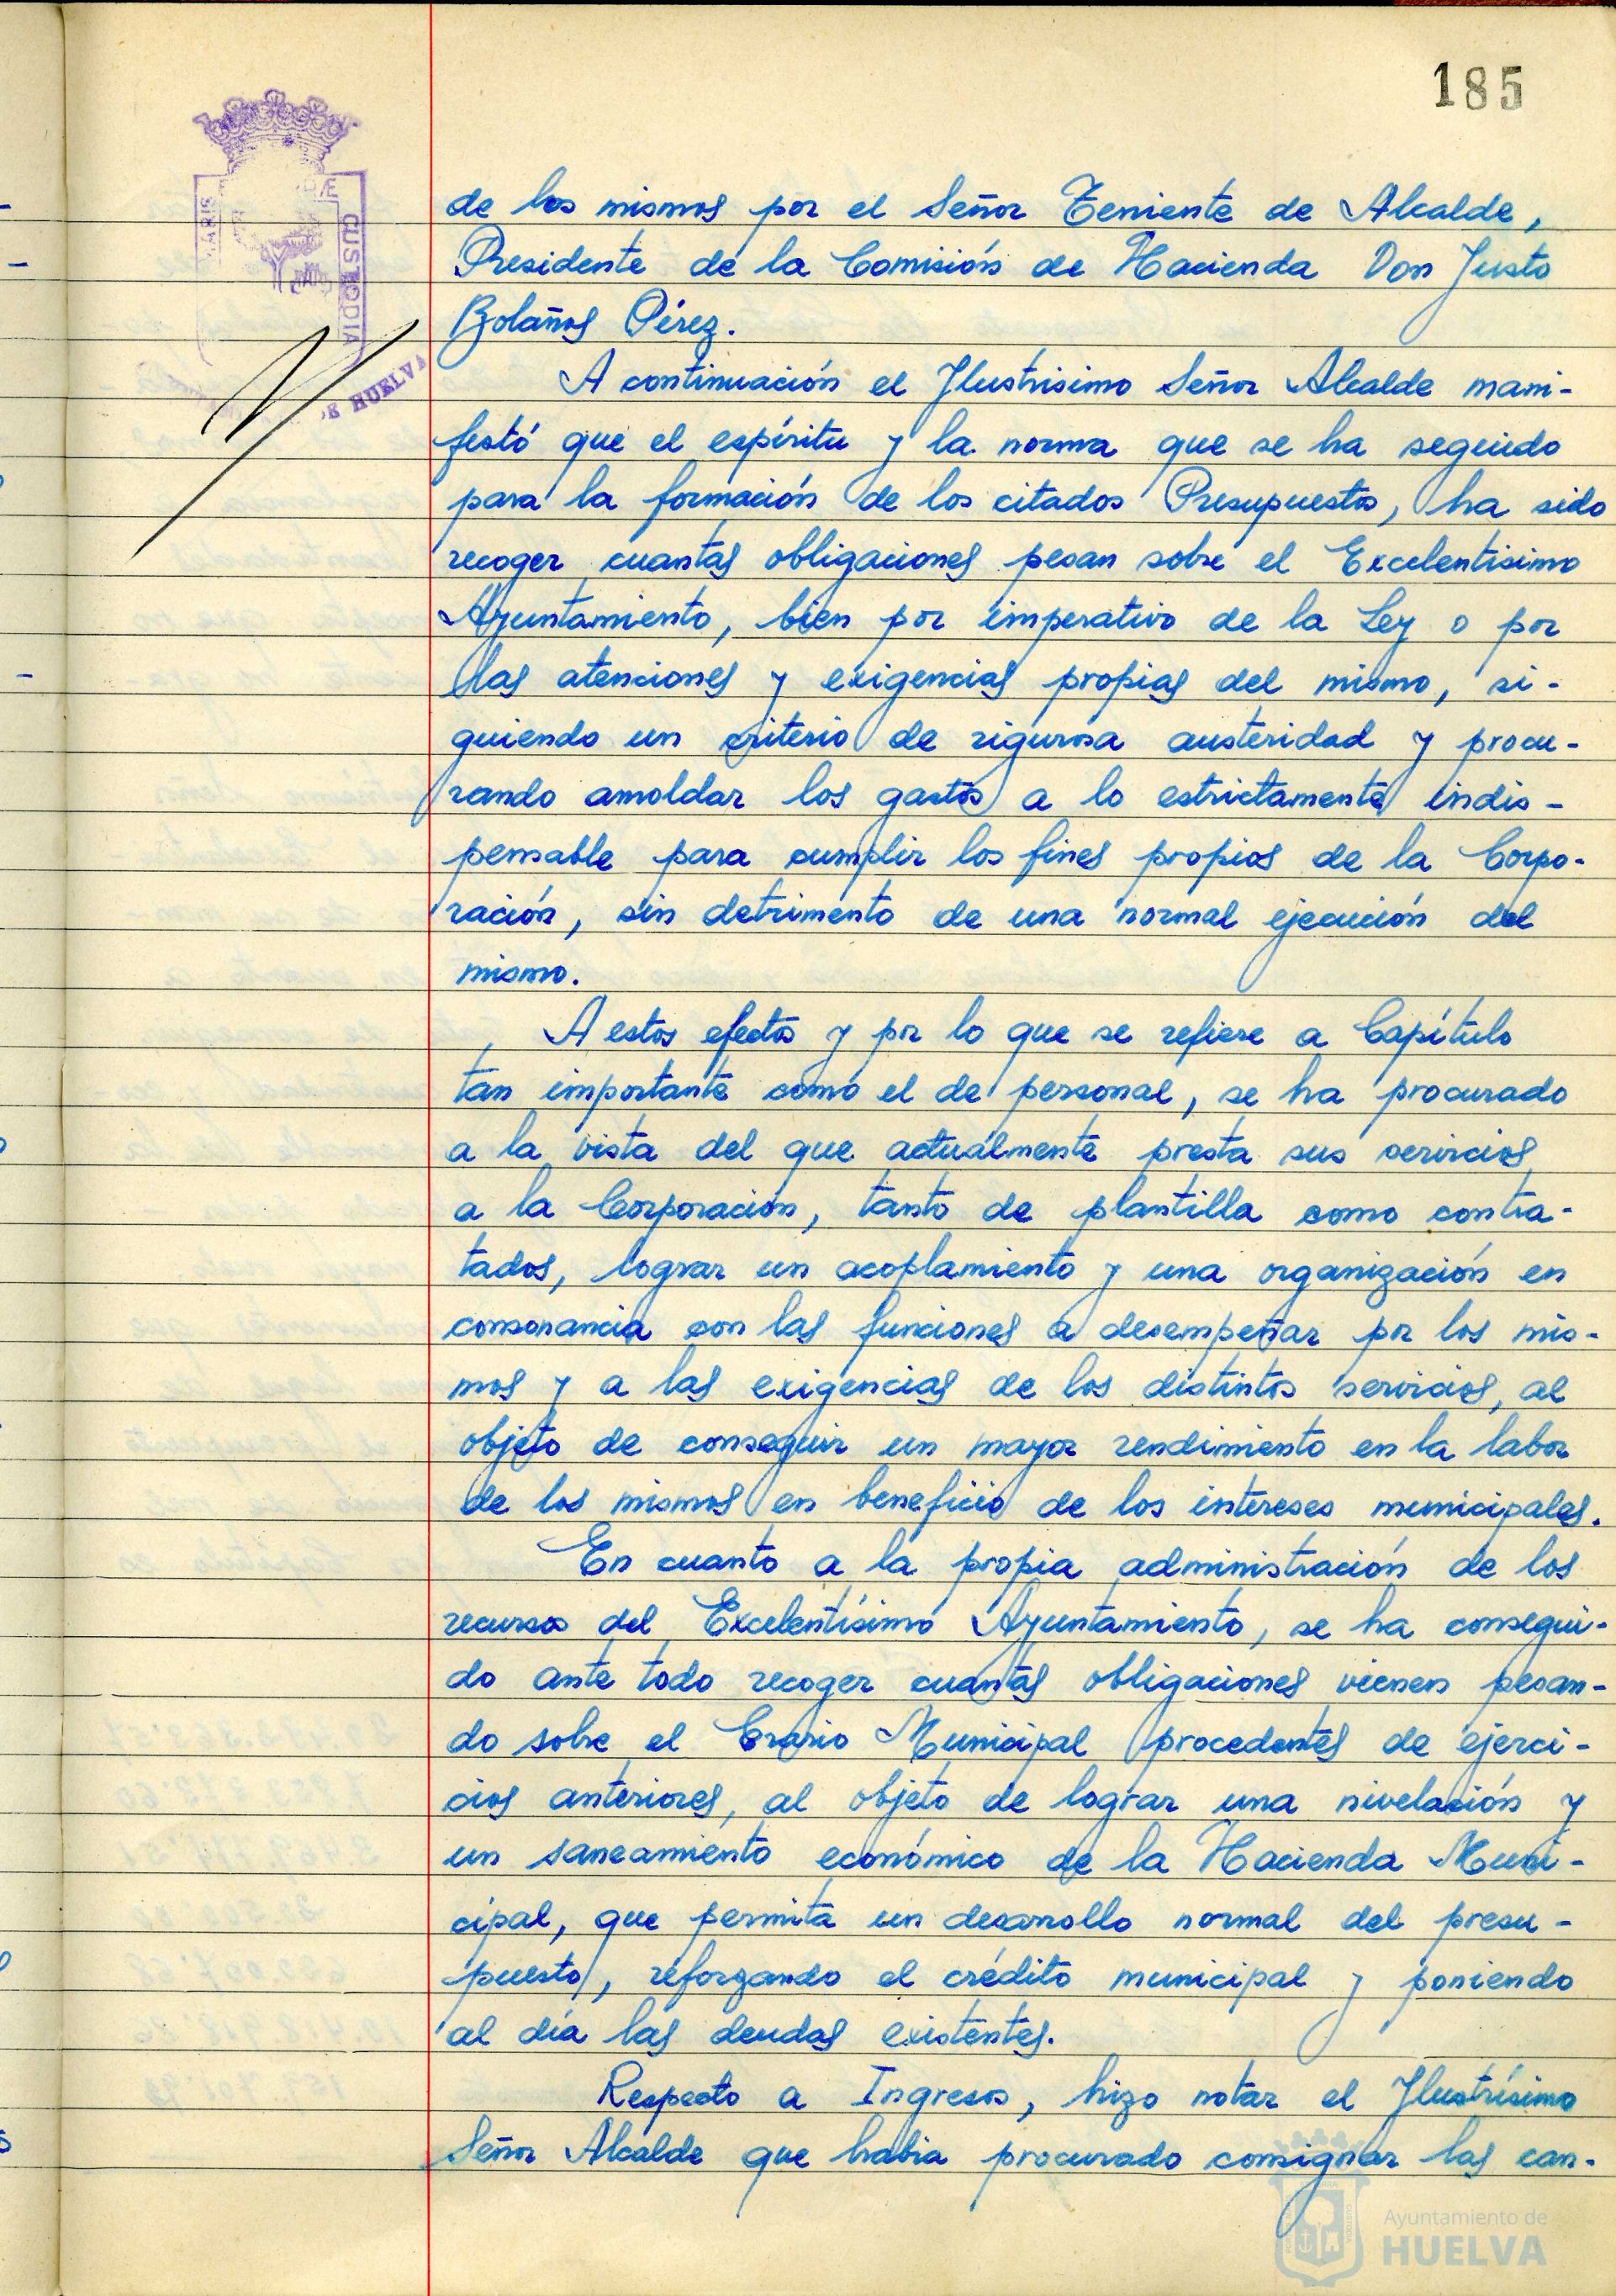 185
ARIS
DÆ
CUSTODIA
DE HUELVA
de los mismos por el Señor Teniente de Alcalde,
Presidente de la Comisión de Hacienda Don Justo
Bolaños Pérez.
A continuación el Ilustrisimo Señor Alcalde mani-
festó que el espíritu y la norma que se ha seguido
para la formación de los citados Presupuestos, ha sido
recoger cuantas obligaciones pesan sobre el Excelentisimo
Ayuntamiento, bien por imperativo de la Ley o por
las atenciones y exigencias propias del mismo, si-
guiendo un criterio de rigurosa austeridad y procu-
rando amoldar los gastos a lo estrictamente indis-
pensable para cumplir los fines propios de la Corpo-
ración, sin detrimento de una normal ejecución del
mismo.
A estos efectos y por lo que se refiere a Capítulo
tan importante como el de personal, se ha procurado
a la vista del que actualmente presta sus servicios
a la Corporación, tanto de plantilla como contra-
tados, lograr un acoplamiento y una organización en
consonancia con las funciones a desempeñar por los mis-
mos y a las exigencias de los distintos servicios, al
objeto de conseguir un mayor rendimiento en la labor
de los mismos en beneficio de los intereses municipales.
En cuanto a la propia administración de los
recursos del Excelentísimo Ayuntamiento, se ha consegui-
do ante todo recoger cuantas obligaciones vienen pesan-
do sobre el Erario Municipal procedentes de ejerci-
cios anteriores, al objeto de lograr una nivelación y
un saneamiento económico de la Hacienda Muni-
cipal, que permita un desarrollo normal del presu-
puesto, reforzando el crédito municipal y poniendo
al día las deudas existentes.
Respecto a Ingresos, hizo notar el Ilustrísimo
Señor Alcalde que habia procurado consignar las can-
Ayuntamiento de
HUELVA